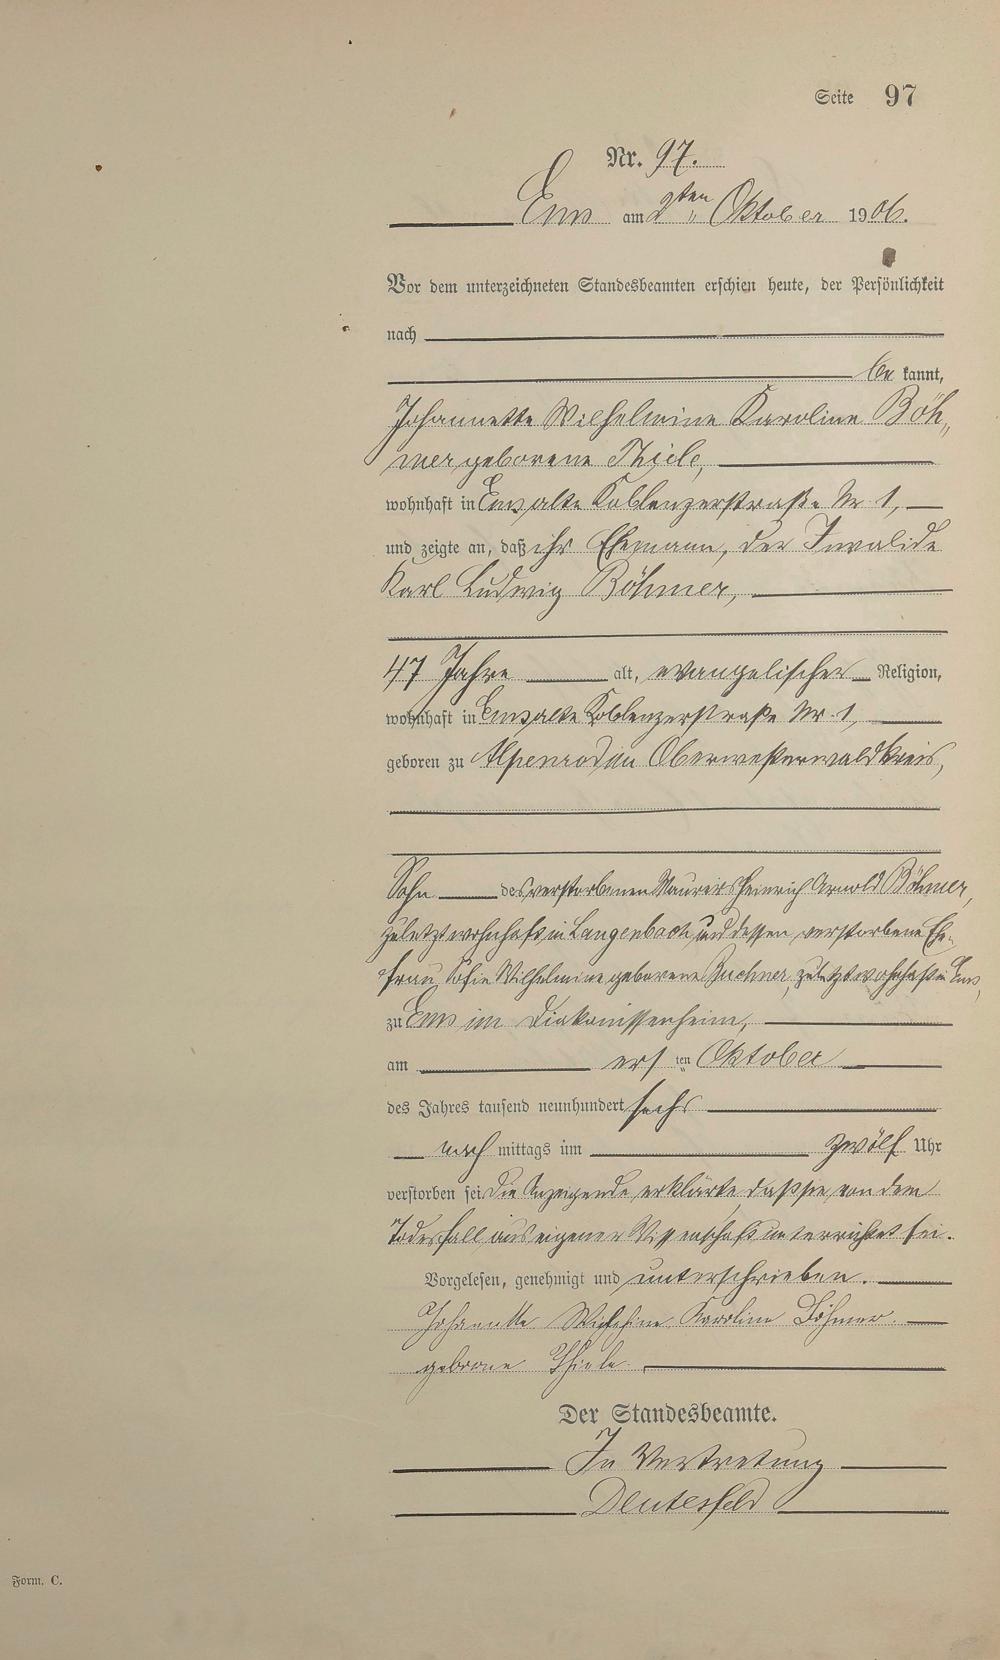 Seite 97
Nr. 97.
Ems am 2ten Oktober 1906.
Vor dem unterzeichneten Standesbeamten erschien heute, der Persönlichkeit
nach
be kannt,
Johannette Wilhelmine Karoline Böh„
mer geborene Thiele,
wohnhaft in Ems, alte Koblenzerstraße Nr 1,
und zeigte an, daß ihr Ehemann, der Invalide
Karl Ludwig Böhmer,
47 Jahre alt, evangelischer Religion,
wohnhaft in Ems, alte Koblenzerstraße Nr. 1,
geboren zu Alpenrod im Oberwesterwaldkreis,
Sohn des verstorbenen Maurers Heinrich Arnold Böhmer,
zuletzt wohnhaft in Langenbach und dessen verstorbene Ehe-
frau Sofie Wilhelmine geborene Buchner, zuletzt wohnhaft in Ems,
zu Ems im Diakonissenheim,
am ersten Oktober
des Jahres tausend neunhundert sechs
nach mittags um zwölf Uhr
verstorben sei. Die Anzeigende erklärte, daß sie von dem
Todesfall aus eigener Wissenschaft unterrichtet sei.
Vorgelesen, genehmigt und unterschrieben.
Johannette Karoline Böhmer.
geborene Thiele.
Der Standesbeamte.
In Vertretung
Deutesfeld
Form. C.